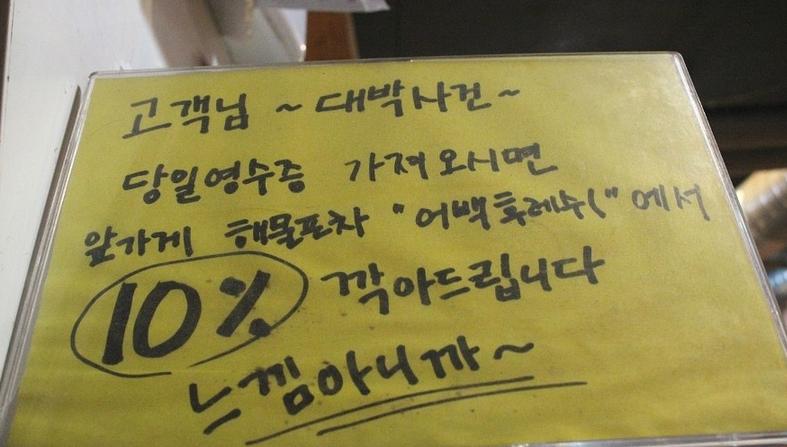 고객님 ~ 대박사건~
당일영수증 가져오시면
앞가게 해물포차 "어백후레쉬"에서
10% 깍아드립니다
느낌아니까~